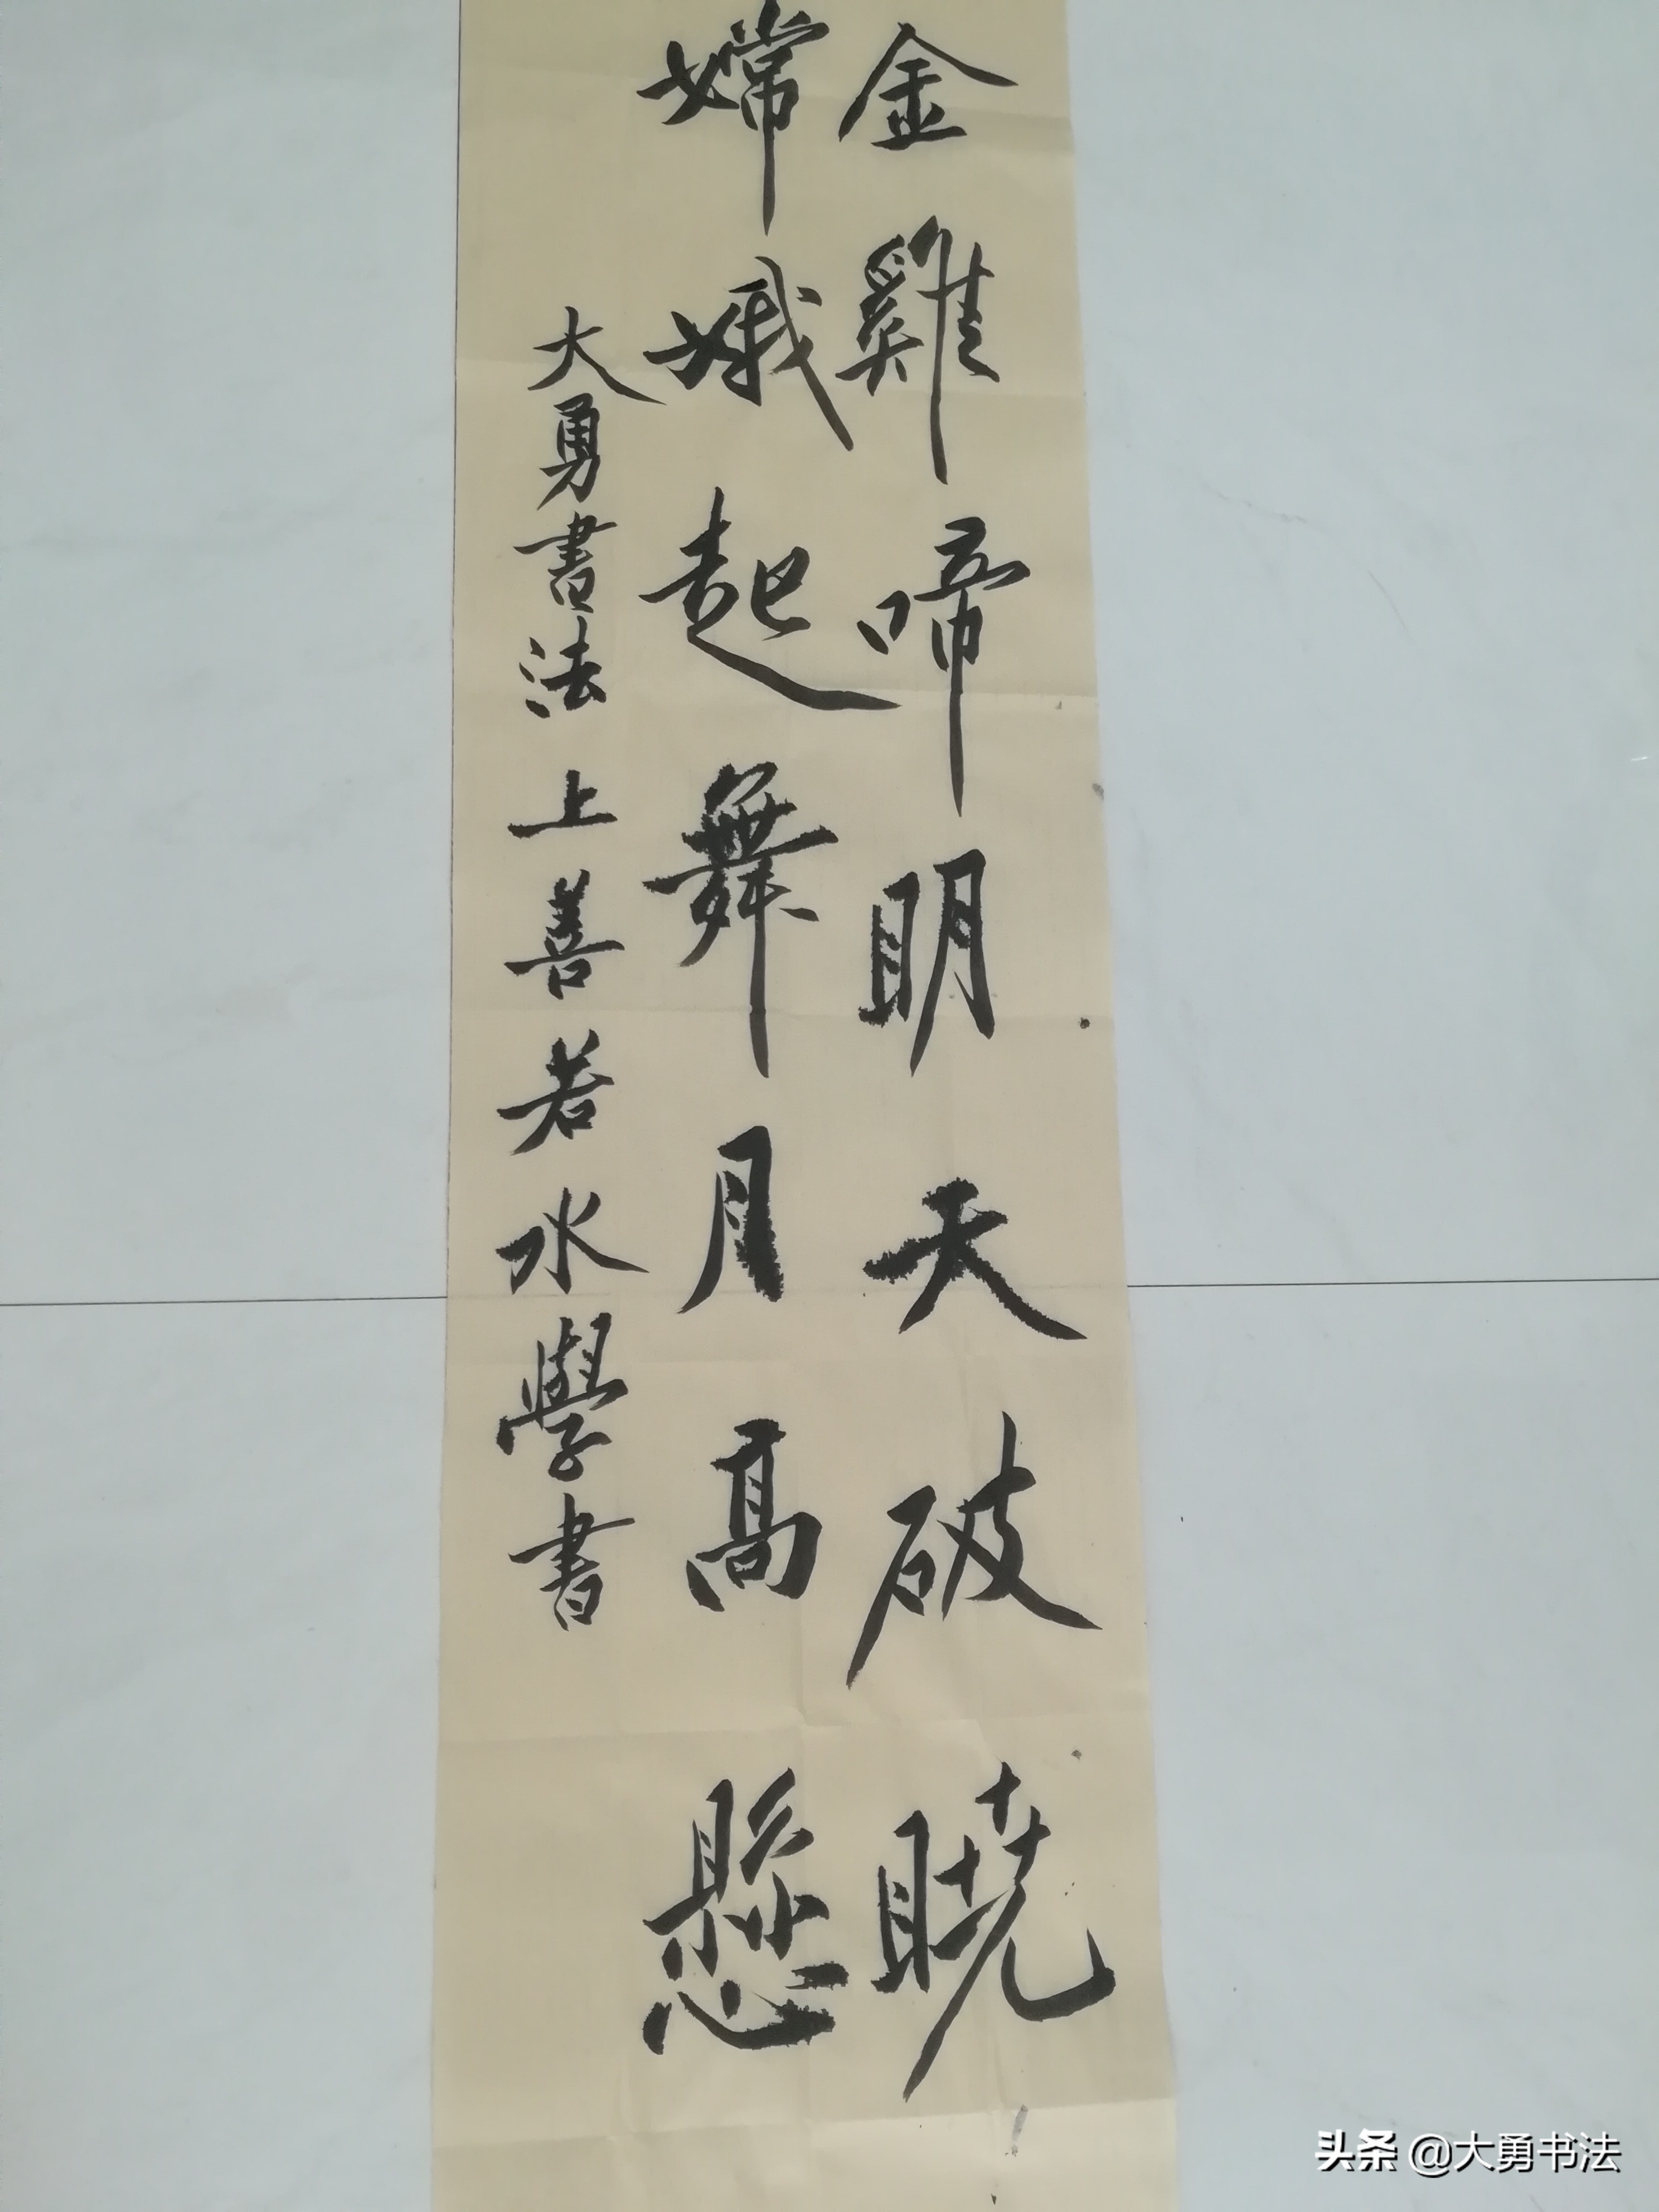 金雞啼明天破曉
嫦娥起舞月高懸
大勇書法上善若水學書
头条 @大勇书法